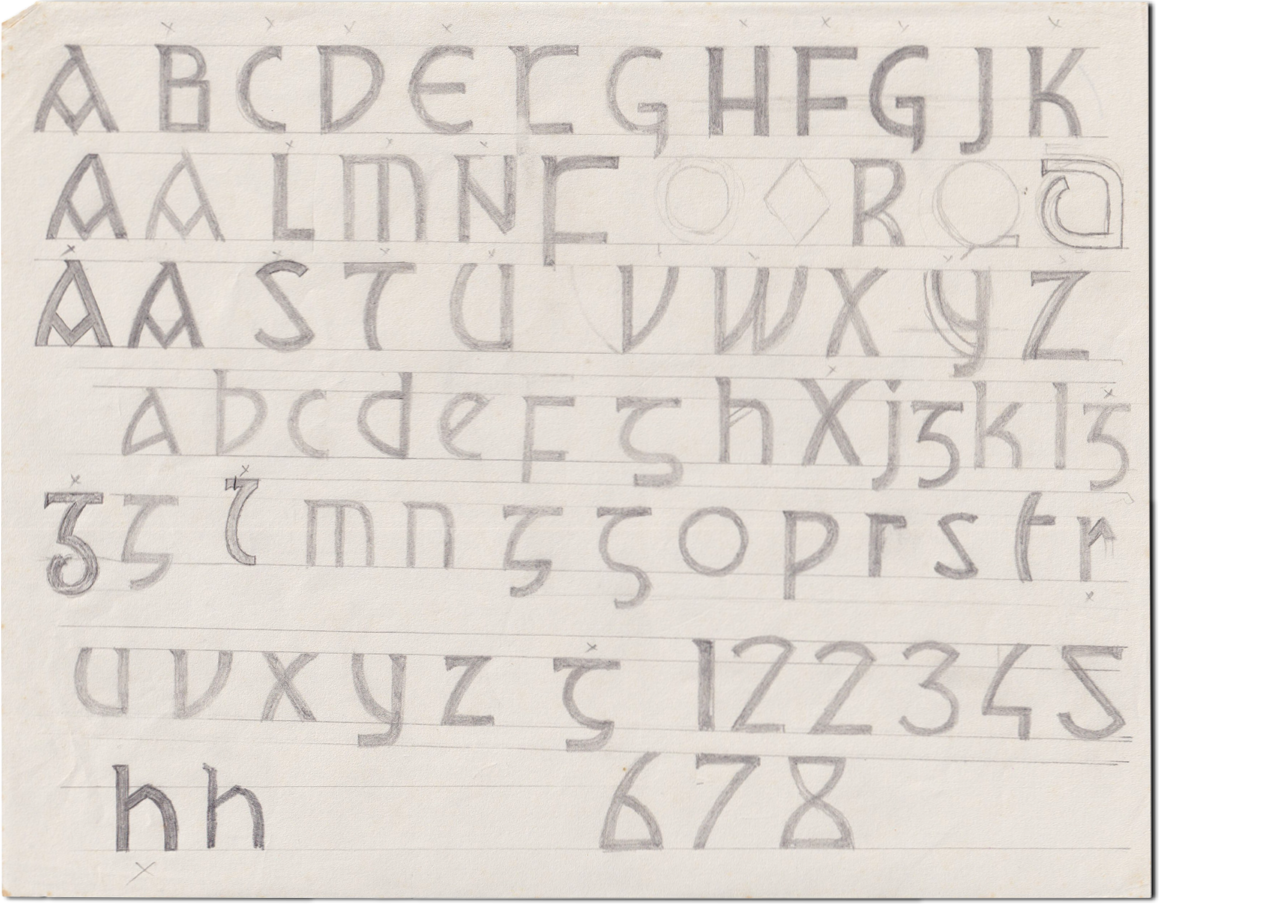 A B C D E F G H F G J K
A A L M N F O R Q Q
A A S T U V W X Y Z
a b c d e F h X j k l
m n o p r s t r
u v x y z 1 2 2 3 4 5
h h 6 7 8